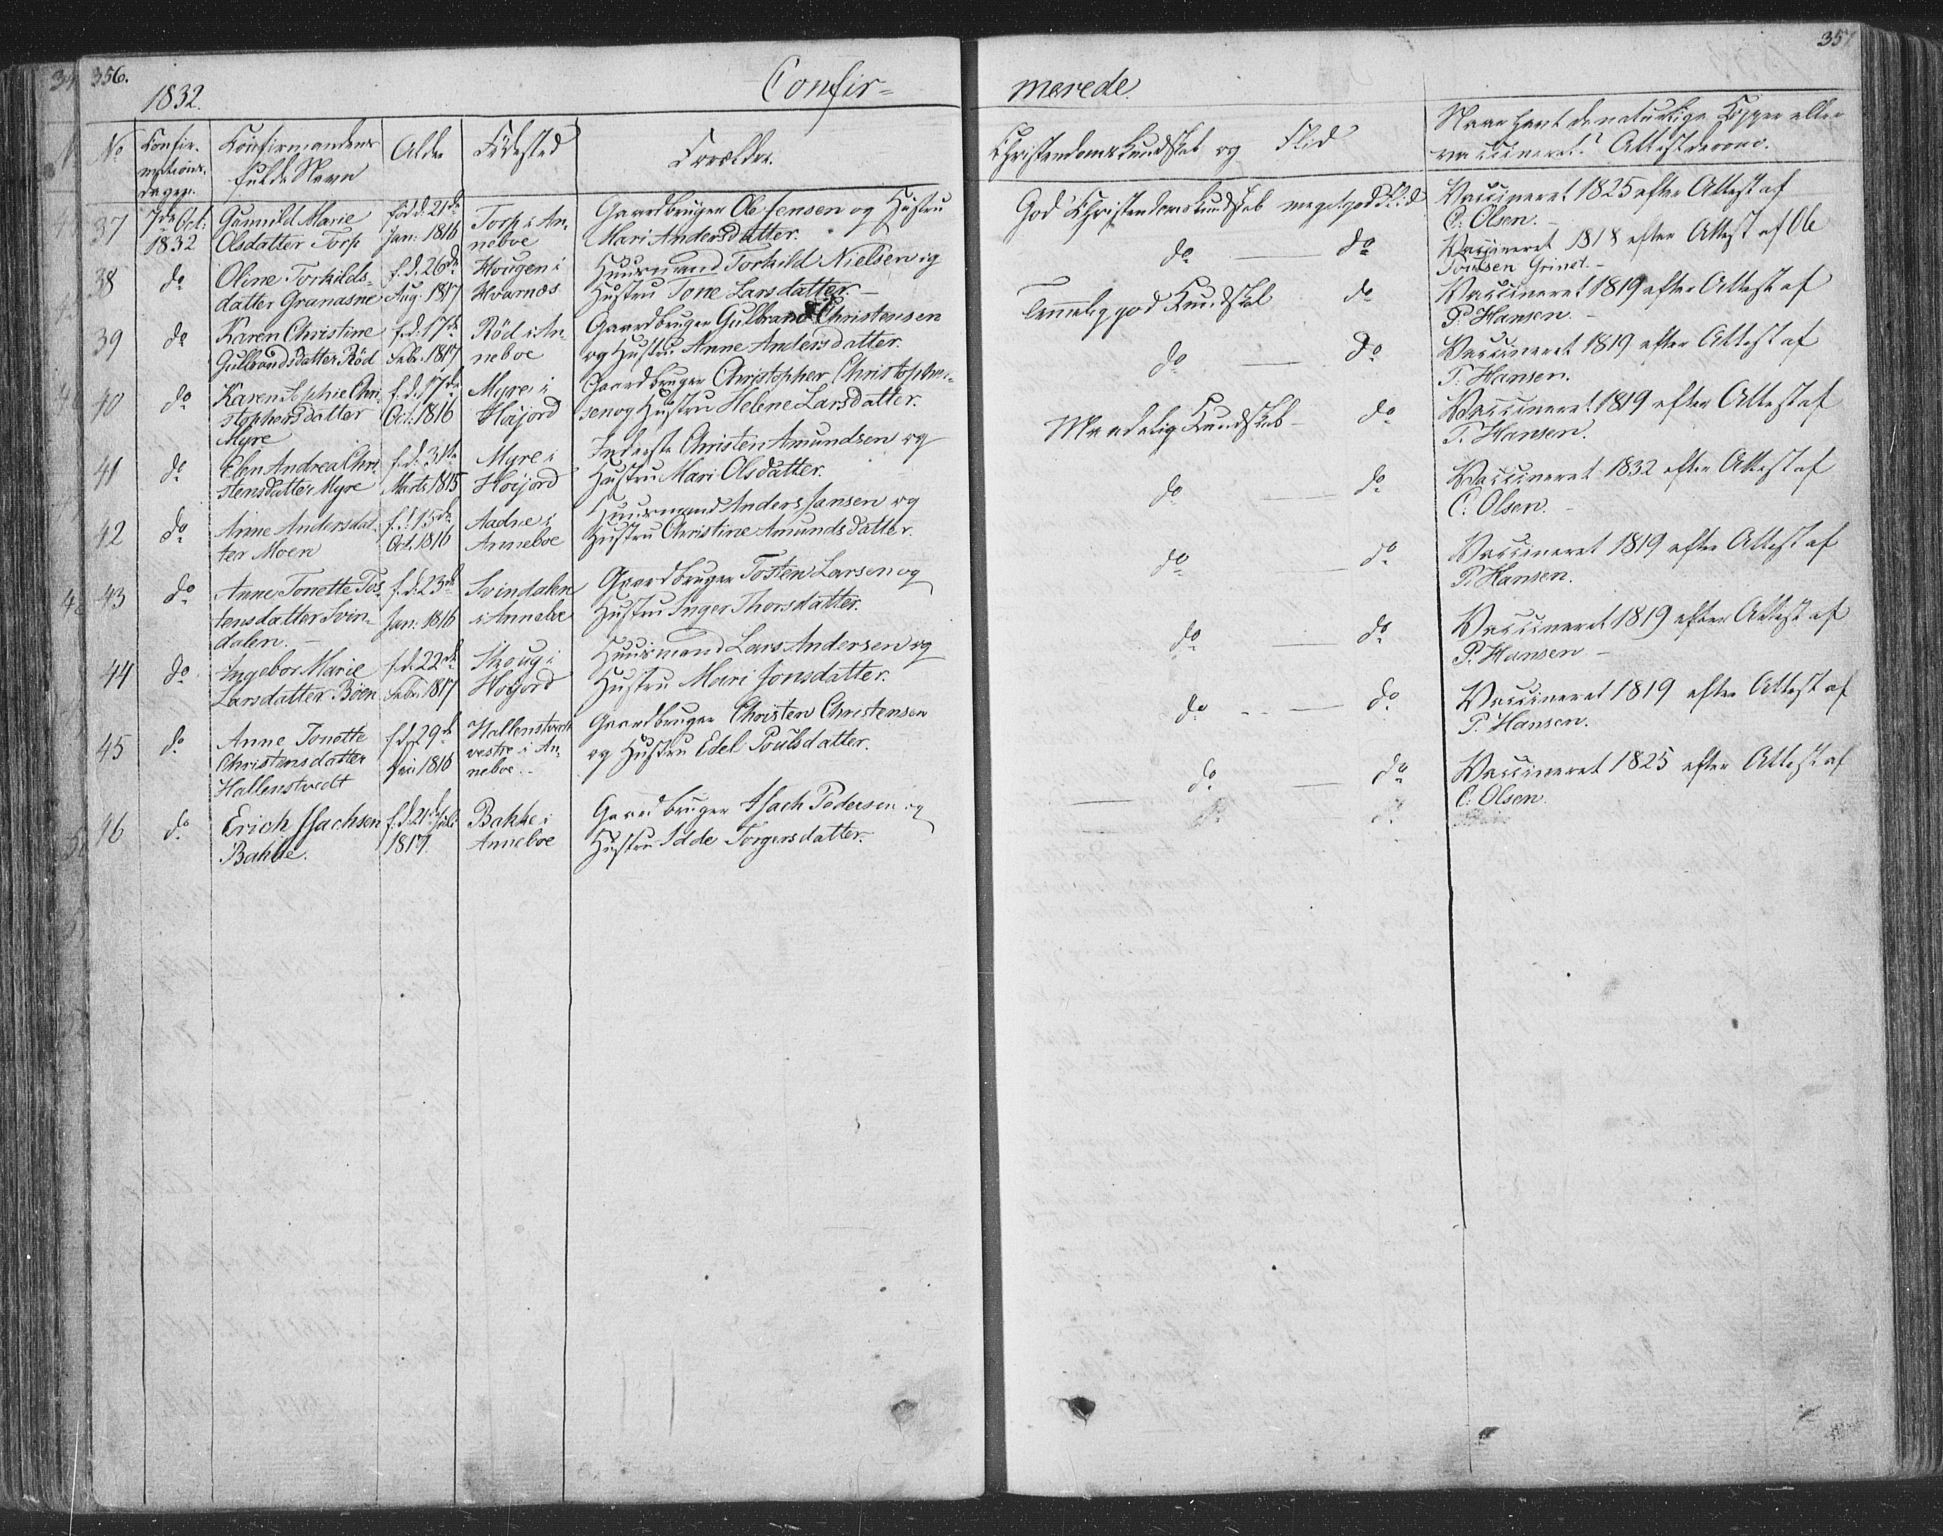 356.
1832.
Confir-
No
Confir-
mations-
dagen.
Confirmandens
fulde Navn
Alder
Födested
Forældre.
37
7de Oct:
1832
Gunnild Marie
Olsdatter Torp
född. 21de
Jan: 1816
Torp i An-
neboe
Gaardbruger Ole Jensen og Hustru
Mari Andersdatter.
38
do
Oline Torkilds-
datter Granasne
f. d. 26de
Aug. 1817
Hougen i
Hvarnæs
Huusmand Torkild Nielsen og
Hustru Tone Larsdatter
39
do
Karen Christine
Gulbrandsdatter Röd
f. d. 17de
Febr. 1817
Röd i An-
neboe
Gaardbruger Gulbrand Christensen
og Hustru Anne Andersdatter.
40
do
Karen Sophie Chri-
stophersdatter
Myre
f. d. 17de
Oct. 1816
Myre i
Höijord
Gaardbruger Christopher Christopher-
sen og Hustru Helene Larsdatter.
41
do
Elen Andrea Chri-
stensdatter Myre
f. d. 31te
Marts 1815
Myre i
Höijord
Inderste Christen Amundsen og
Hustru Mari Olsdatter.
42
do
Anne Andersdat-
ter Moen
f. d. 15de
Oct. 1816
Aadne i
Anneboe
Huusmand Anders Jansen og
Hustru Christine Amundsdatter.
43
do
Anne Tonette Tos-
tensdatter Svin-
dalen.
f. d. 23de
Jan: 1816
Svindalen
i Anneboe
Gaardbruger Tosten Larsen og
Hustru Inger Thorsdatter.
44
do
Ingebor Marie
Larsdatter Böen
f. d. 22de
Febr. 1817
Skoug i
Höijord
Huusmand Lars Andersen og
Hustru Mari Jonsdatter.
45
do
Anne Tonette
Christensdatter
Hallenstvedt
f. d. 29de
1816
Hallenstvedt
vestre i An-
neboe.
Gaardbruger Christen Christensen
og Hustru Edel Poulsdatter.
46
do
Erich Isachsen
Bakke.
f. d. 21de Juli
1817
Bakke i
Anneboe
Gaardbruger Isach Pedersen og
Hustru Idde Torgersdatter.
357
merede.
Christendomskundskab og Flid
Naar havt de naturlige Kopper eller
vaccineret? Attest derom.
God Christendomskundskab meget god Flid
Vaccineret 1825 efter Attest af
C. Olsen.
do do
Vaccineret 1818 efter Attest af Ole
Grinet.
Temmelig god Kundskab do
Vaccineret 1819 efter Attest af
P. Hansen.
do do
Vaccineret 1819 efter Attest af
P. Hansen.
Maadelig Kundskab do
Vaccineret 1819 efter Attest af
P. Hansen.
do do
Vaccineret 1832 efter Attest af
C. Olsen.
do do
Vaccineret 1819 efter Attest af
P. Hansen.
do do
Vaccineret 1819 efter Attest af
P. Hansen
do do
Vaccineret 1819 efter Attest af
P. Hansen.
do do
Vaccineret 1825 efter Attest af
C. Olsen.